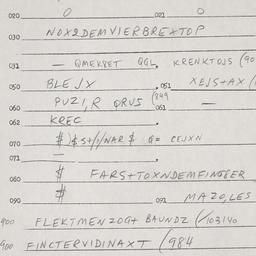 020. O 021 O
030. NOX2DEMVIERBREXTOP
031 — QMEKBET QGL, KRENKTOJS (90
050 BLEJX . 051 XEJS+AX
060 PUZI,R QRUS (849 061 —
062 KREC
070 $ )$S+/1/NAR $ G= CEJXN
071 —
080 $ FARS+TOXNDEMFINGEER
090 # 091 MAZO,LES
900 FLEKTMENZOGT BAUNDZ (/103140
900 FINCTERVIDINAXT (984